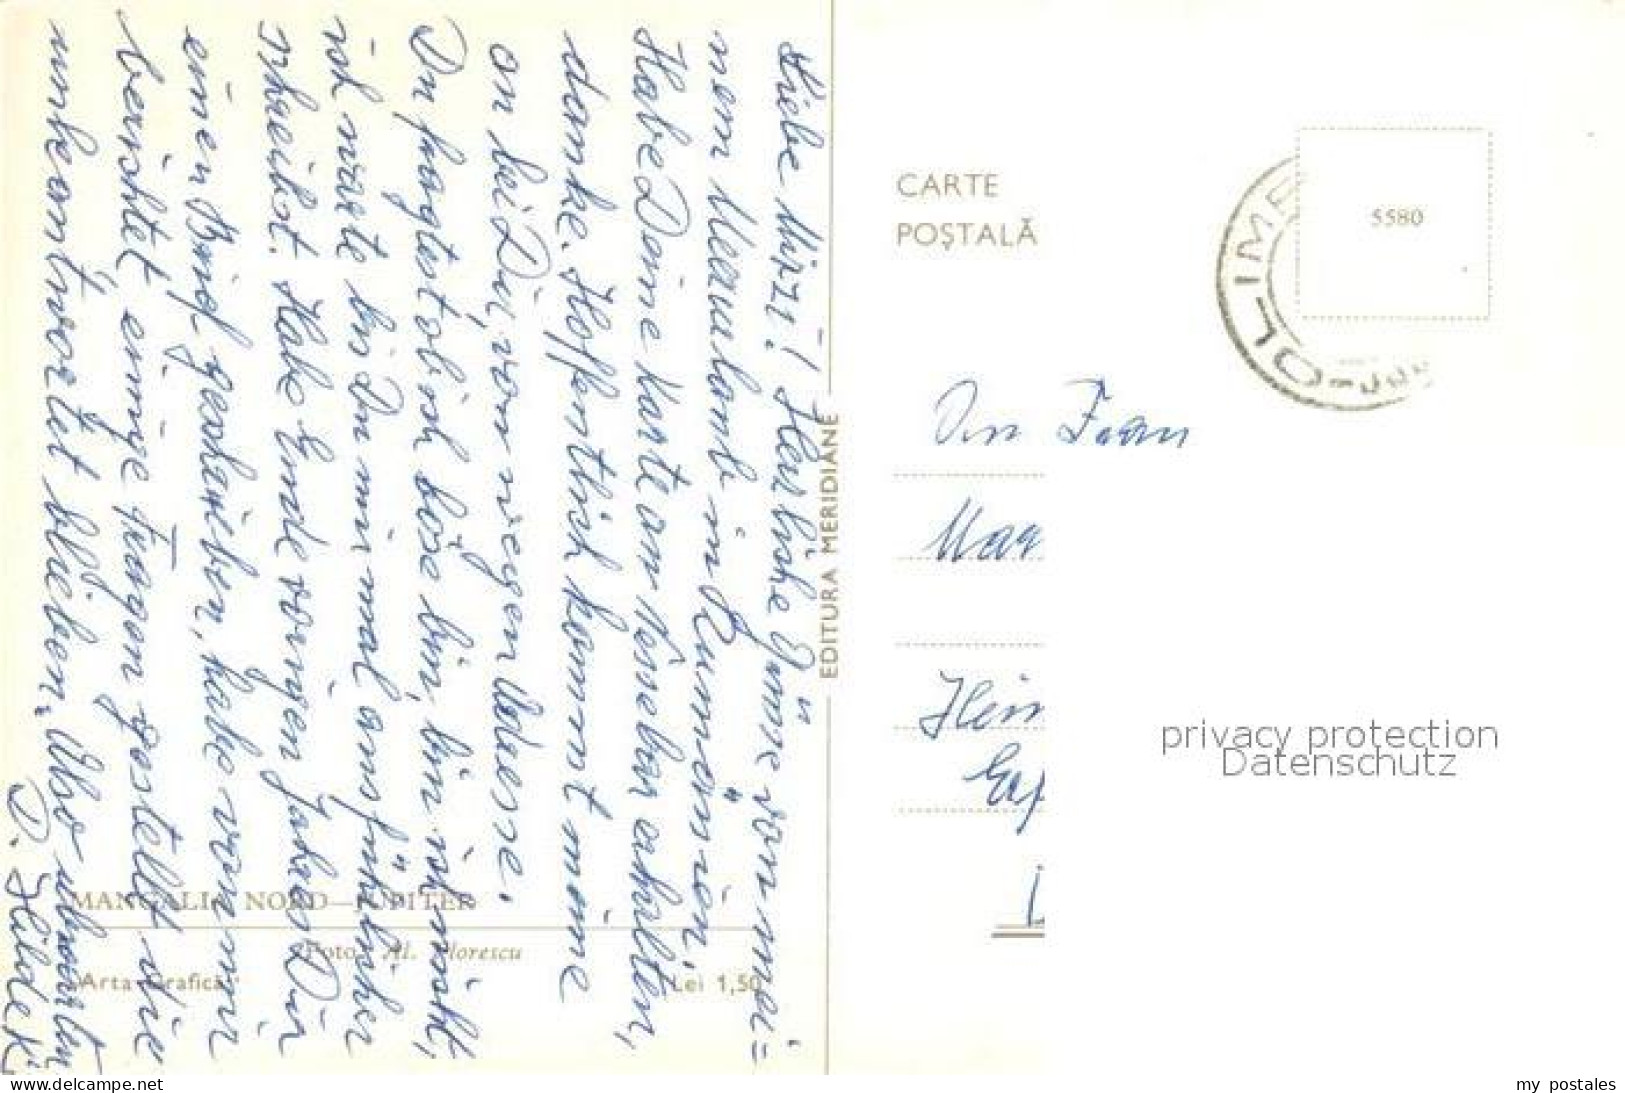 Liebe Mizzi! Herzliche Grüsse von mei=
nem Urlaub in Rumänien.
Habe Deine Karte an Nessebar erhalten,
danke. Hoffentlich kommst meine
an bei Dir, von wegen Adresse.
Du fragtest ob ich böse bin, bin ich nicht,
ich warte bis Du mir mal ausführlicher
schreibst. Habe Ende vorigen Jahres Dir
einen Brief geschrieben, habe von mir
berichtet, einige Fragen gestellt die
unbeantwortet blieben. Also abwarten
D. Hilde K.
MANGALIA NORD—JUPITER
Foto: Al. Florescu
"Arta Grafică"
Lei 1,50
EDITURA MERIDIANE
CARTE
POȘTALĂ
5580
OLIMP
An Frau
privacy protection
Datenschutz
www.delcampe.net
my_postales